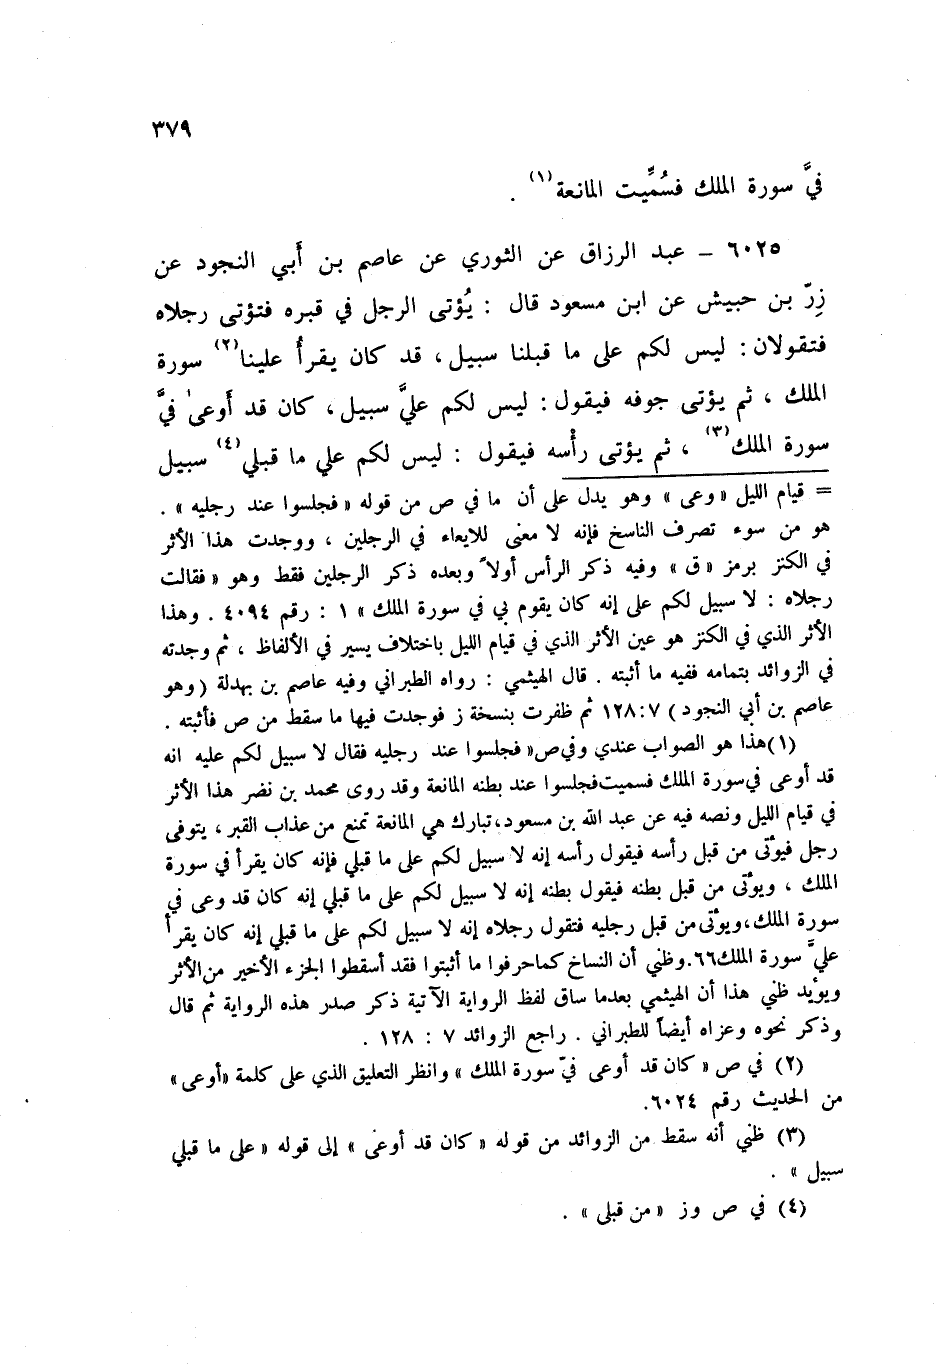 ٣٧٩
فيَّ سورة الملك فسُمِّيت المانعة (١) .
٦٠٢٥ – عبد الرزاق عن الثوري عن عاصم بن أَبي النجود عن
زِرّ بن حبيش عن ابن مسعود قال : يُؤتى الرجل في قبره فتؤتى رجلاه
فتقولان : ليس لكم على ما قبلنا سبيل ، قد كان يقرأُ علينا (٢) سورة
الملك ، ثم يؤتى جوفه فيقول : ليس لكم عليَّ سبيل ، كان قد أَوعىٰ فيَّ
سورة الملك (٣) ، ثم يؤتى رأْسه فيقول : ليس لكم علي ما قبلي (٤) سبيل
= قيام الليل « وعى » وهو يدل على أن ما في ص من قوله « فجلسوا عند رجليه » .
هو من سوء تصرف الناسخ فإنه لا معنى للايعاء في الرجلين ، ووجدت هذا الأثر
في الكنز برمز « ق » وفيه ذكر الرأس أولاً وبعده ذكر الرجلين فقط وهو « فقالت
رجلاه : لا سبيل لكم على إنه كان يقوم بي في سورة الملك » ١ : رقم ٤٠٩٤ . وهذا
الأثر الذي في الكنز هو عين الأثر الذي في قيام الليل باختلاف يسير في الألفاظ ، ثم وجدته
في الزوائد بتمامه ففيه ما أثبته . قال الهيثمي : رواه الطبراني وفيه عاصم بن بهدلة ( وهو
عاصم بن أبي النجود ) ١٢٨:٧ ثم ظفرت بنسخة ز فوجدت فيها ما سقط من ص فأثبته .
(١) هذا هو الصواب عندي وفي ص « فجلسوا عند رجليه فقال لا سبيل لكم عليه انه
قد أوعى في سورة الملك فسميت فجلسوا عند بطنه المانعة وقد روى محمد بن نضر هذا الأثر
في قيام الليل ونصه فيه عن عبد الله بن مسعود، تبارك هي المانعة تمنع من عذاب القبر ، يتوفى
رجل فيؤتى من قبل رأسه فيقول رأسه إنه لا سبيل لكم على ما قبلي فإنه كان يقرأ في سورة
الملك ، ويؤتى من قبل بطنه فيقول بطنه إنه لا سبيل لكم على ما قبلي إنه كان قد وعى في
سورة الملك، ويؤتى من قبل رجليه فتقول رجلاه إنه لا سبيل لكم على ما قبلي إنه كان يقرأ
عليَّ سورة الملك ٦٦. وظني أن النساخ كما حرفوا ما أثبتوا فقد أسقطوا الجزء الأخير من الأثر
ويؤيد ظني هذا أن الهيثمي بعدما ساق لفظ الرواية الآتية ذكر صدر هذه الرواية ثم قال
وذكر نحوه وعزاه أيضاً للطبراني . راجع الزوائد ٧ : ١٢٨ .
(٢) في ص « كان قد أوعى فيّ سورة الملك » وانظر التعليق الذي على كلمة « أوعى »
من الحديث رقم ٦٠٢٤.
(٣) ظني أنه سقط من الزوائد من قوله « كان قد أوعى » إلى قوله « على ما قبلي
سبيل » .
(٤) في ص وز « من قبلى » .